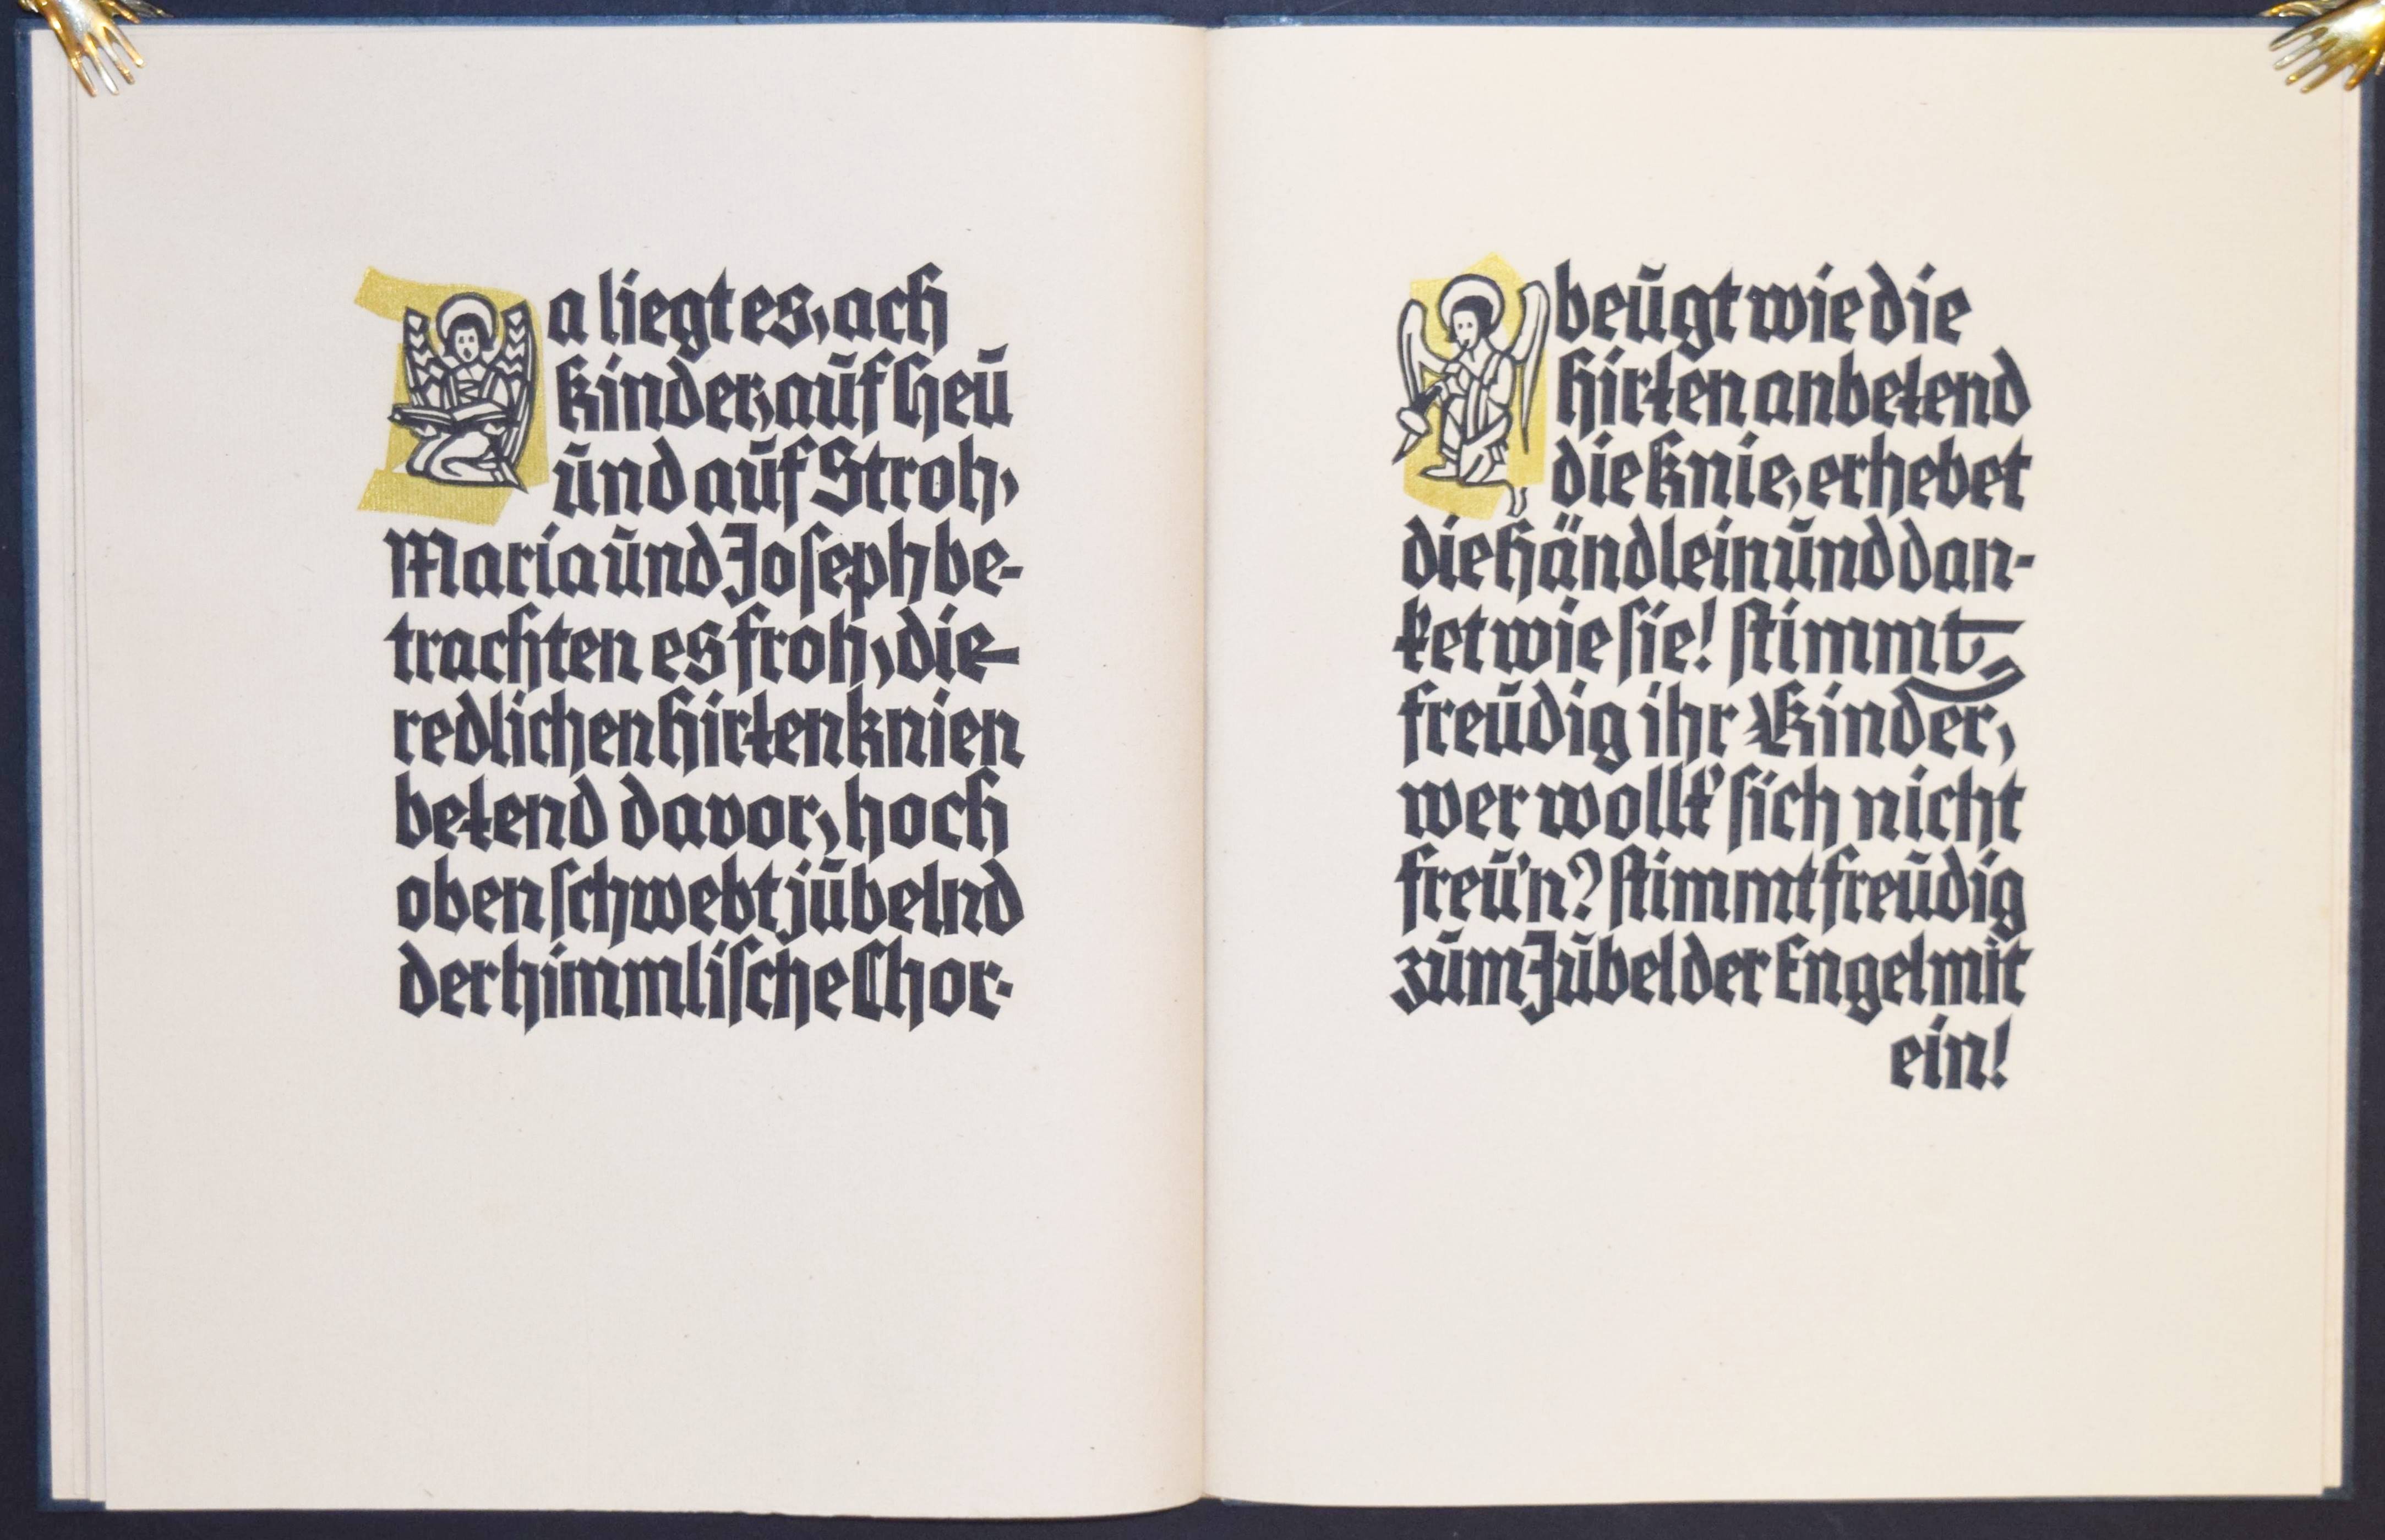 Da liegt es, ach
Kinder, auf Heu
und auf Stroh,
Maria und Joseph be-
trachten es froh, die
redlichen Hirten knien
betend davor, hoch
oben schwebt jubelnd
der himmlische Chor.
O beugt wie die
Hirten anbetend
die Knie, erhebet
die Händlein und dan-
ket wie sie! Stimmt
freudig ihr Kinder,
wer wollt' sich nicht
freu'n? Stimmt freudig
zum Jubel der Engel mit
ein!